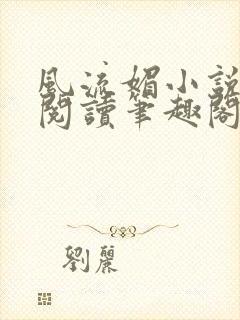 風流媚小說
閱讀筆趣閣
劉麗